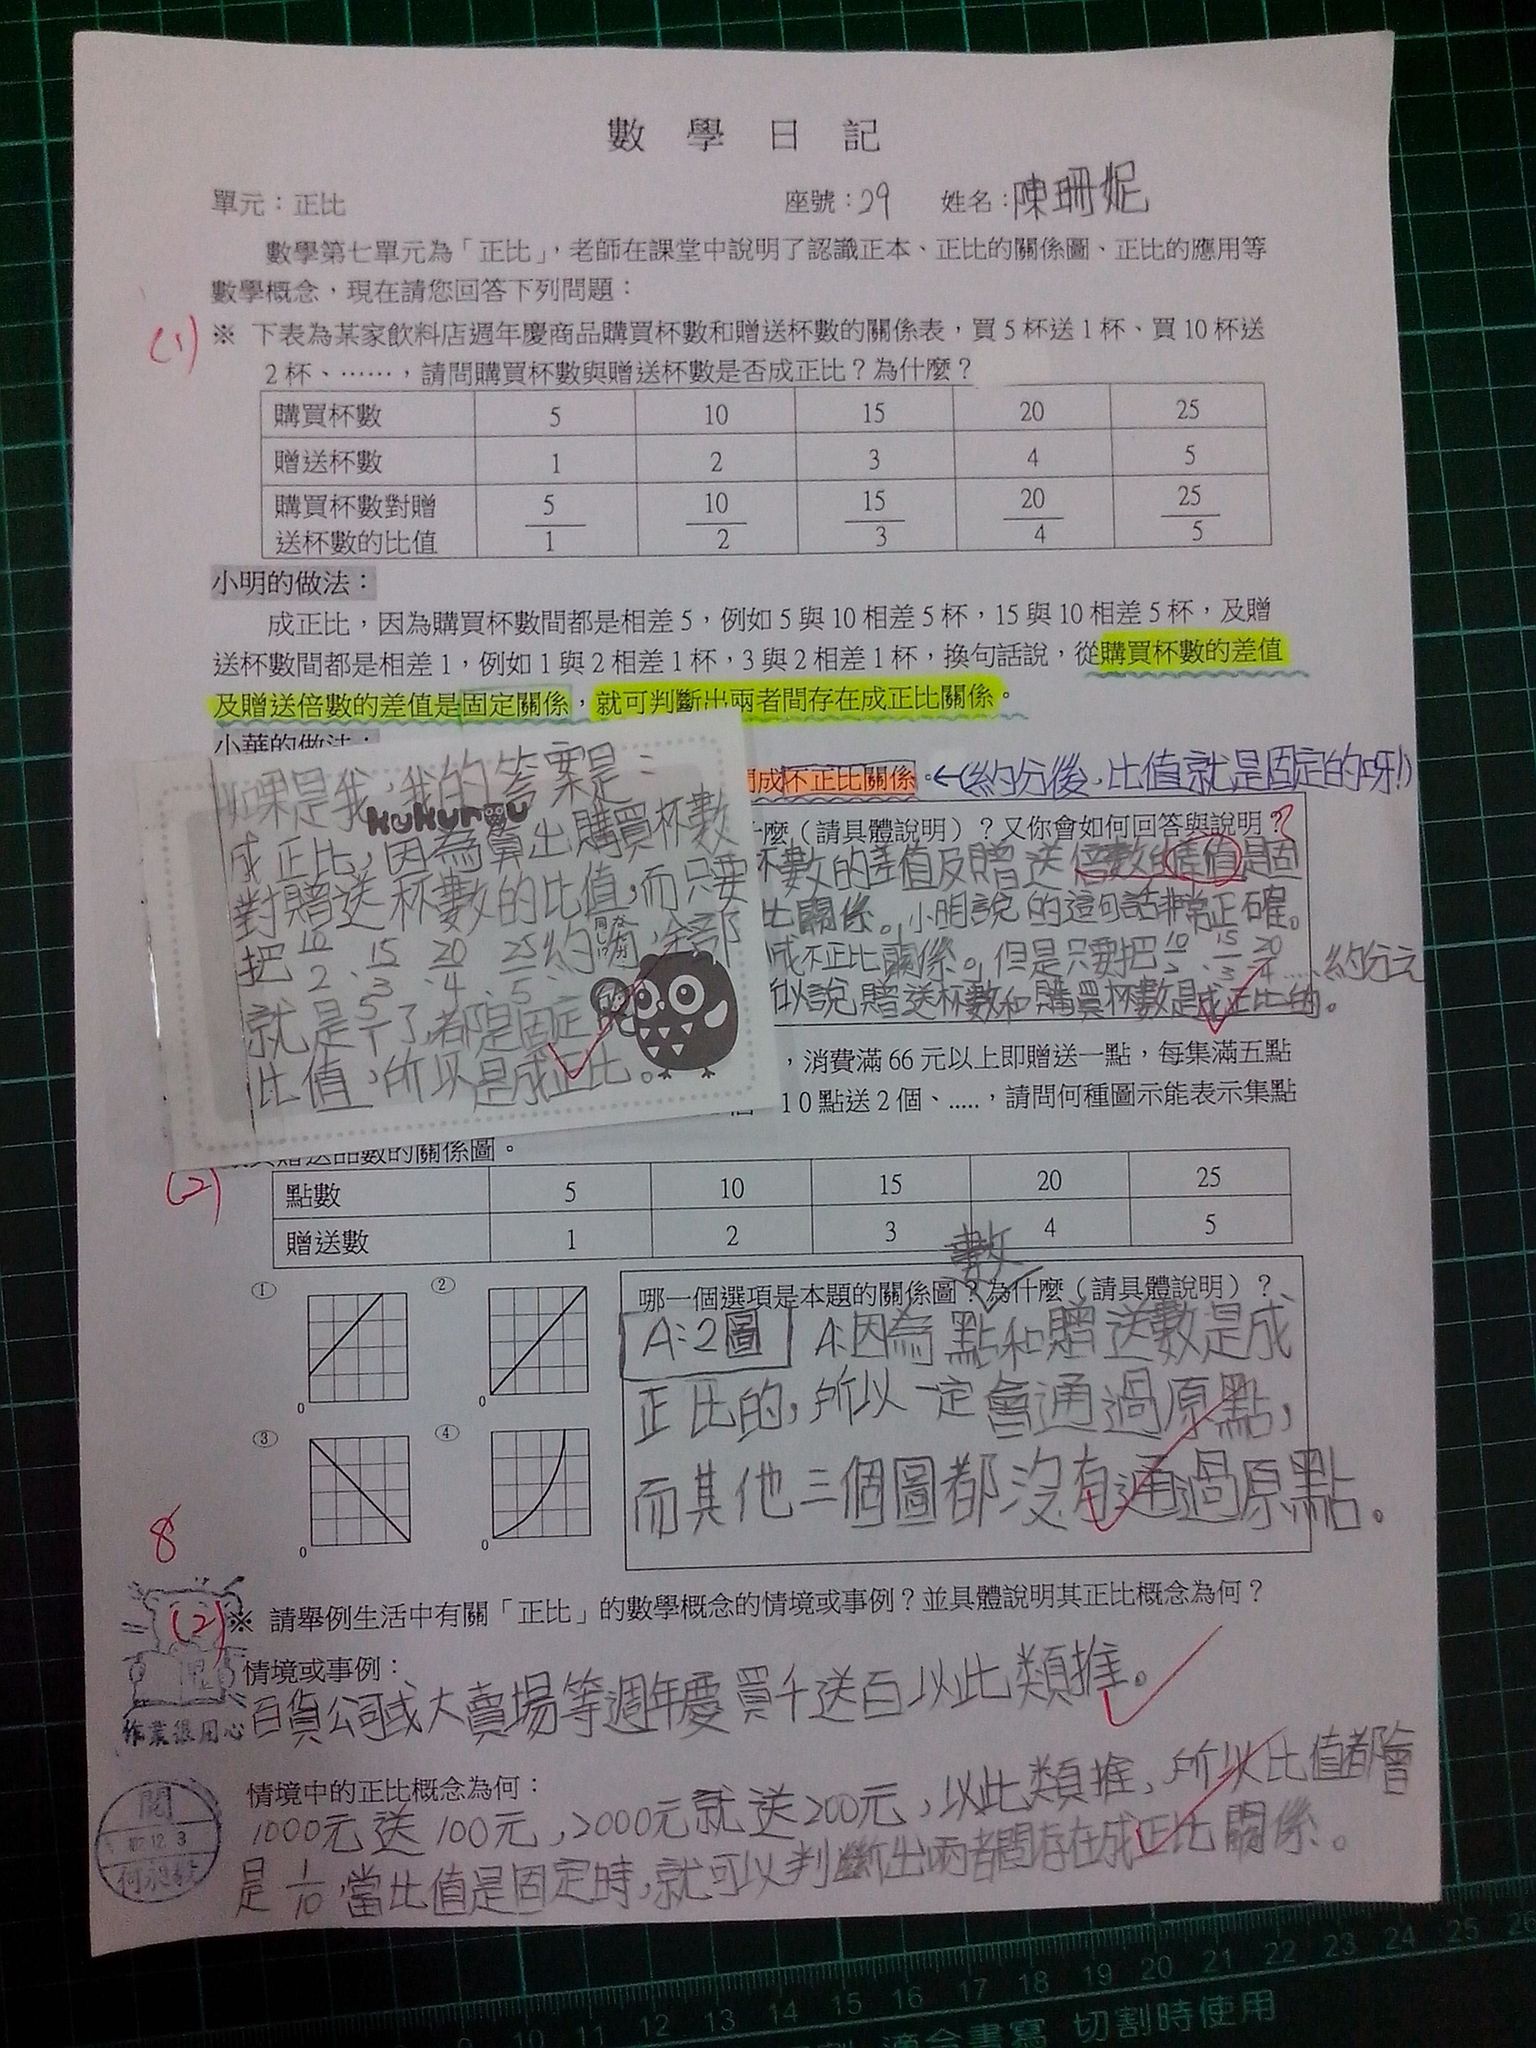 數學日記
單元：正比 座號：29 姓名：陳珊妮
數學第七單元為「正比」，老師在課堂中說明了認識正本、正比的關係圖、正比的應用等
數學概念，現在請您回答下列問題：
(1) ※ 下表為某家飲料店週年慶商品購買杯數和贈送杯數的關係表，買5杯送1杯、買10杯送
2杯、……，請問購買杯數與贈送杯數是否成正比？為什麼？
購買杯數 5 10 15 20 25
贈送杯數 1 2 3 4 5
購買杯數對贈送杯數的比值 5/1 10/2 15/3 20/4 25/5
小明的做法：
成正比，因為購買杯數間都是相差5，例如5與10相差5杯，15與10相差5杯，及贈
送杯數間都是相差1，例如1與2相差1杯，3與2相差1杯，換句話說，從購買杯數的差值
及贈送倍數的差值是固定關係，就可判斷出兩者間存在成正比關係。
小華的做法：
成不正比關係。←(約分後，比值就是固定的呀!)
什麼（請具體說明）？又你會如何回答與說明？
杯數的差值及贈送倍數的差值是固
比關係。小明說的這句話非常正確。
成不正比關係。但是只要把10/2、15/3、20/4……約分完
以說，贈送杯數和購買杯數是成正比的。
如果是我，我的答案是：
kukurou
成正比，因為算出購買杯數
對贈送杯數的比值，而只要
把10/2、15/3、20/4、25/5、約分，全部
就是5/1了，都是固定
比值，所以是成正比。
，消費滿66元以上即贈送一點，每集滿五點
個、10點送2個、.....，請問何種圖示能表示集點
與贈送品數的關係圖。
(2)
點數 5 10 15 20 25
贈送數 1 2 3 4 5
① ② ③ ④
0 0 0 0
哪一個選項是本題的關係圖？為什麼（請具體說明）？
A：2圖 A：因為點數和贈送數是成
正比的，所以一定會通過原點，
而其他三個圖都沒有通過原點。
8
(2) ※ 請舉例生活中有關「正比」的數學概念的情境或事例？並具體說明其正比概念為何？
情境或事例：
百貨公司或大賣場等週年慶買千送百以此類推。
作業很用心
情境中的正比概念為何：
1000元送100元，2000元就送200元，以此類推，所以比值都會
是1/10，當比值是固定時，就可以判斷出兩者間存在成正比關係。
閱
12 3
13 14 15 16 17 18 19 20 21 22 23 24 25
適合書寫 切割時使用